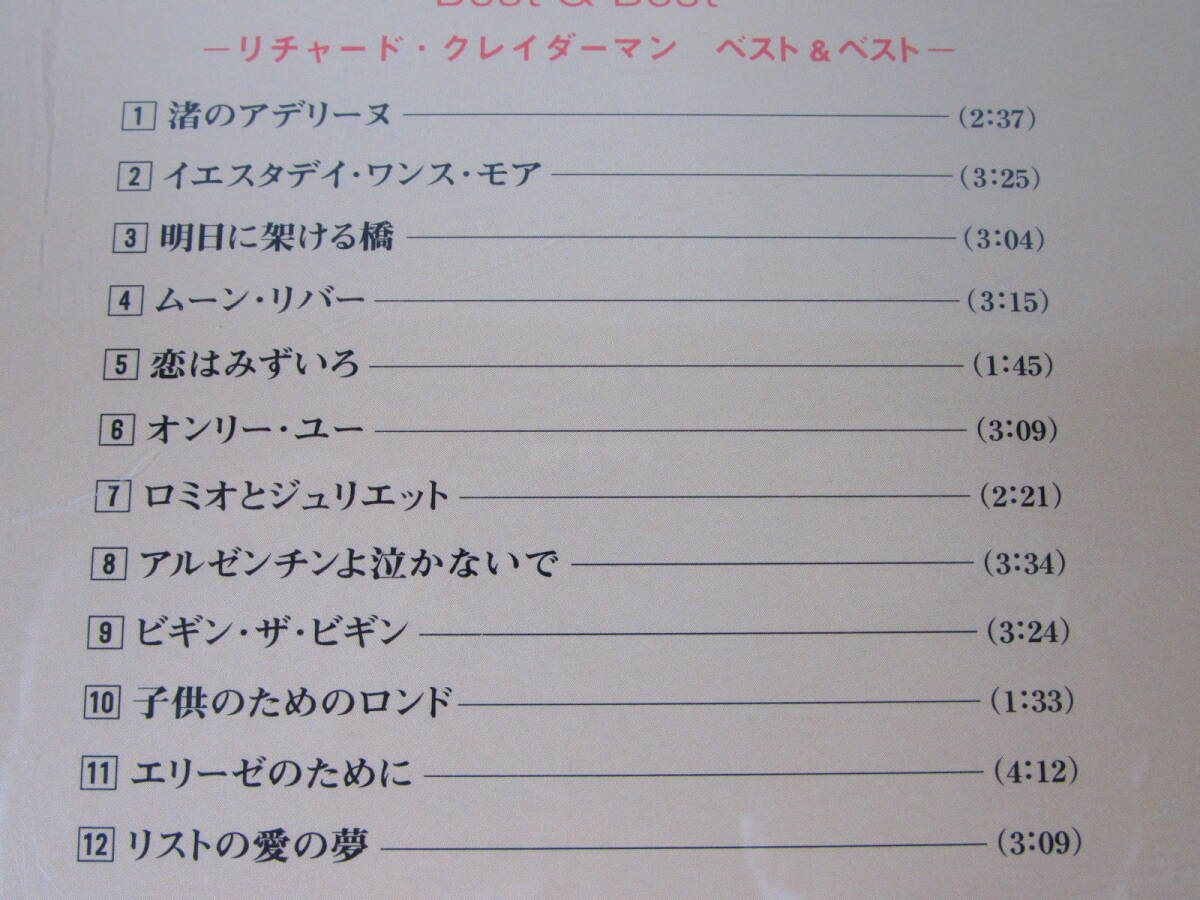 Best & Best
―リチャード・クレイダーマン ベスト&ベスト―
1 渚のアデリーヌ (2:37)
2 イエスタデイ・ワンス・モア (3:25)
3 明日に架ける橋 (3:04)
4 ムーン・リバー (3:15)
5 恋はみずいろ (1:45)
6 オンリー・ユー (3:09)
7 ロミオとジュリエット (2:21)
8 アルゼンチンよ泣かないで (3:34)
9 ビギン・ザ・ビギン (3:24)
10 子供のためのロンド (1:33)
11 エリーゼのために (4:12)
12 リストの愛の夢 (3:09)